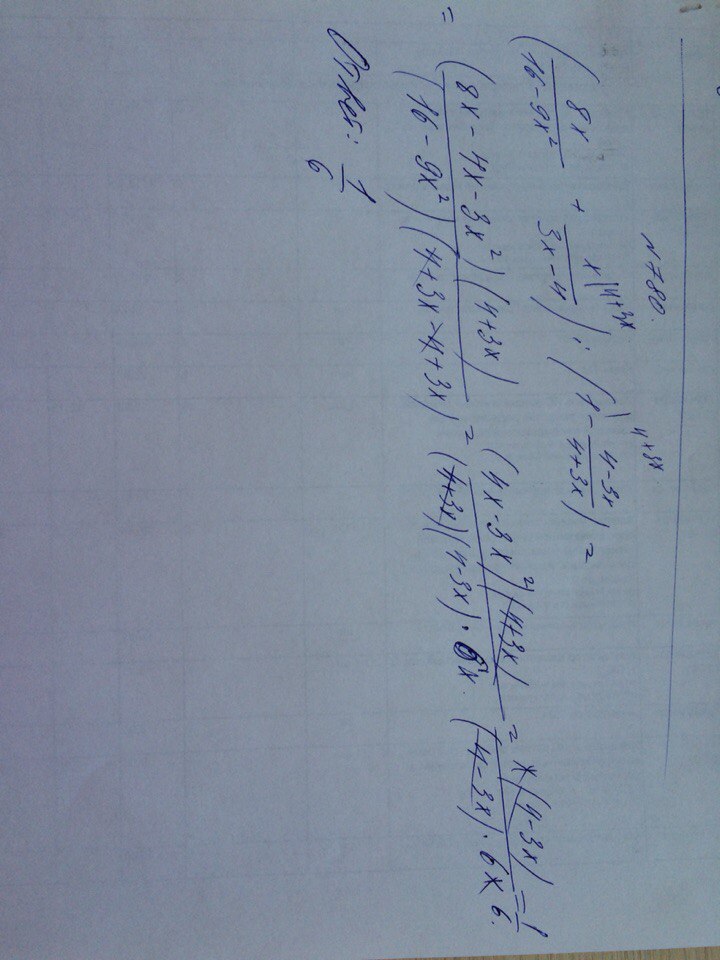 N780.
(8x/(16-9x²) + x|4+3x/(3x-4)) : (1|4+3x - (4-3x)/(4+3x)) =
= (8x-4x-3x²)(4+3x)/((16-9x²)(4+3x-4+3x)) = (4x-3x²)(4+3x)/((4+3x)(4-3x)·6x) = x(4-3x)/((4-3x)·6x) = 1/6.
Ответ: 1/6